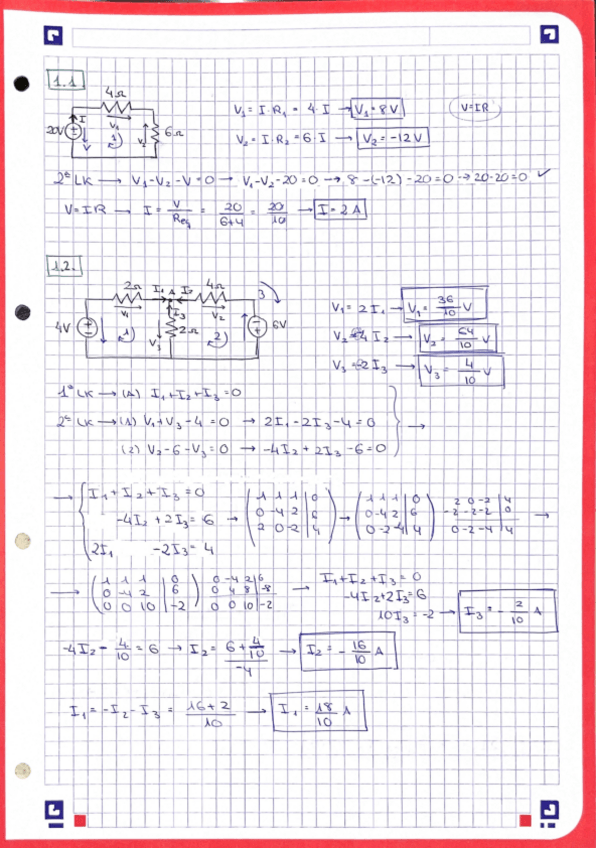 1.1
4Ω
20V
I
V
V₁
1
V₂
6Ω
V₁ = I·R₁ = 4·I → V₁ = 8V
V=IR
V₂ = I·R₂ = 6·I → V₂ = -12V
2ª LK → V₁-V₂-V=0 → V₁-V₂-20=0 → 8-(-12)-20=0 → 20-20=0 ✓
V=IR → I = V/Req = 20/6+4 = 20/10 → I = 2 A
1.2.
2Ω I₁ A I₂ 4Ω
V₁ I₃ V₂ 3
4V 1 V₃ 2Ω 2 6V
V₁ = 2I₁ → V₁ = 36/10 V
V₂ = -4I₂ → V₂ = 64/10 V
V₃ = -2I₃ → V₃ = 4/10 V
1ª LK → (A) I₁+I₂+I₃=0
2ª LK → (1) V₁+V₃-4=0 → 2I₁-2I₃-4=0 →
(2) V₂-6-V₃=0 → -4I₂+2I₃-6=0
→ I₁+I₂+I₃=0
-4I₂+2I₃=6
2I₁ -2I₃=4
→ (1 1 1 | 0
0 -4 2 | 6
2 0 -2 | 4)
→ (1 1 1 | 0
0 -4 2 | 6
0 -2 -4 | 4)
2 0 -2 | 4
-2 -2 -2 | 0
0 -2 -4 | 4 →
→ (1 1 1 | 0
0 -4 2 | 6
0 0 10 | -2)
0 -4 2 | 6
0 4 8 | -8
0 0 10 | -2
→ I₁+I₂+I₃=0
-4I₂+2I₃=6
10I₃=-2 → I₃ = -2/10 A
-4I₂ - 4/10 = 6 → I₂ = (6+4/10)/-4 → I₂ = -16/10 A
I₁ = -I₂-I₃ = 16+2/10 → I₁ = 18/10 A